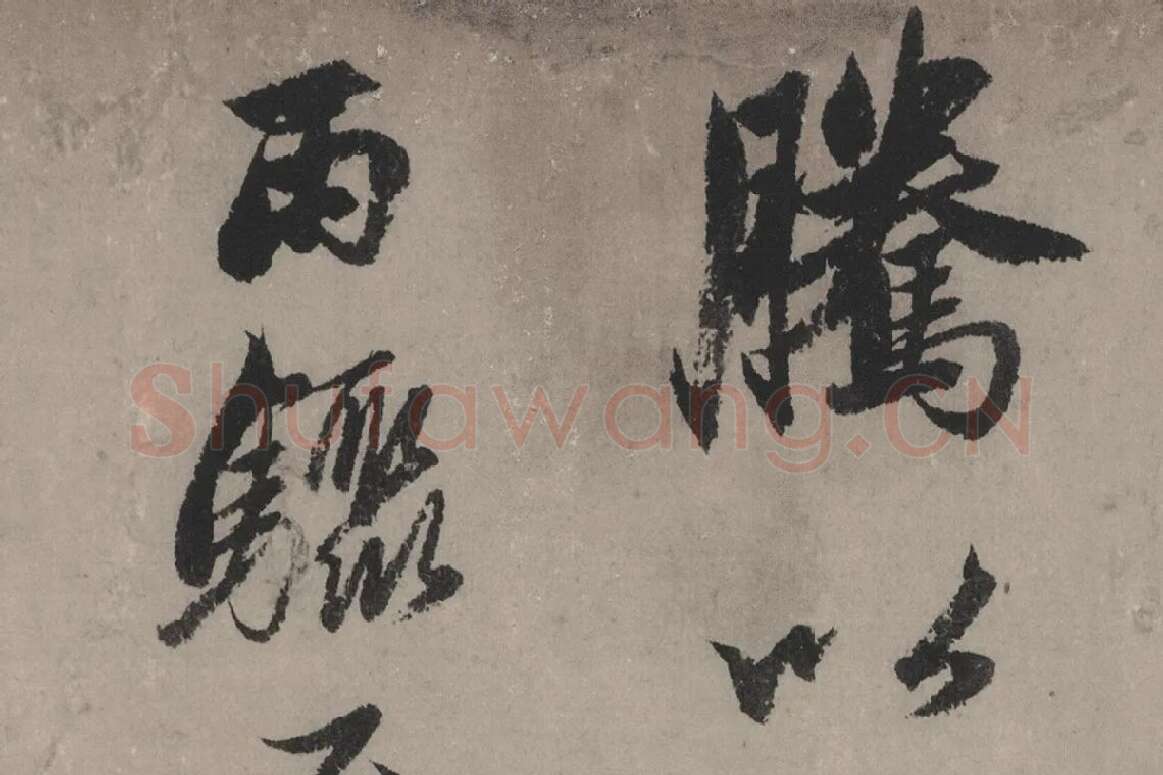 騰以
雨驟
Shufawang.CN